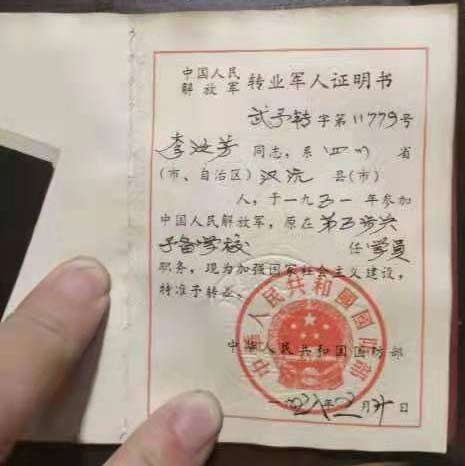 中国人民
解放军 转业军人证明书
武予转字第11779号
李 芳 同志,系四川省
(市、自治区)汉 县(市)
人,于一九五一年参加
中国人民解放军,原在第五步兵
予备学校 任 学员
职务,现为加强国家社会主义建设,
特准予转业。
中华人民共和国国防部
中华人民共和国国防部
一九 年二月 日